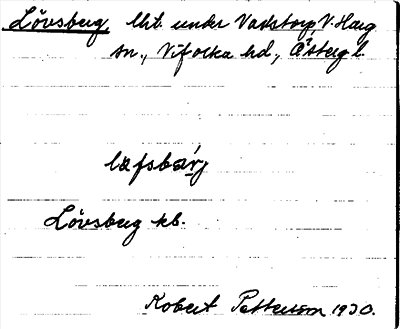 Lövsberg, lht. under Vadstorp, V. Harg
sn., Vifolka hd., Österg l.
læfsbærj
Lövsberg kb.
Robert Pettersson 1930.